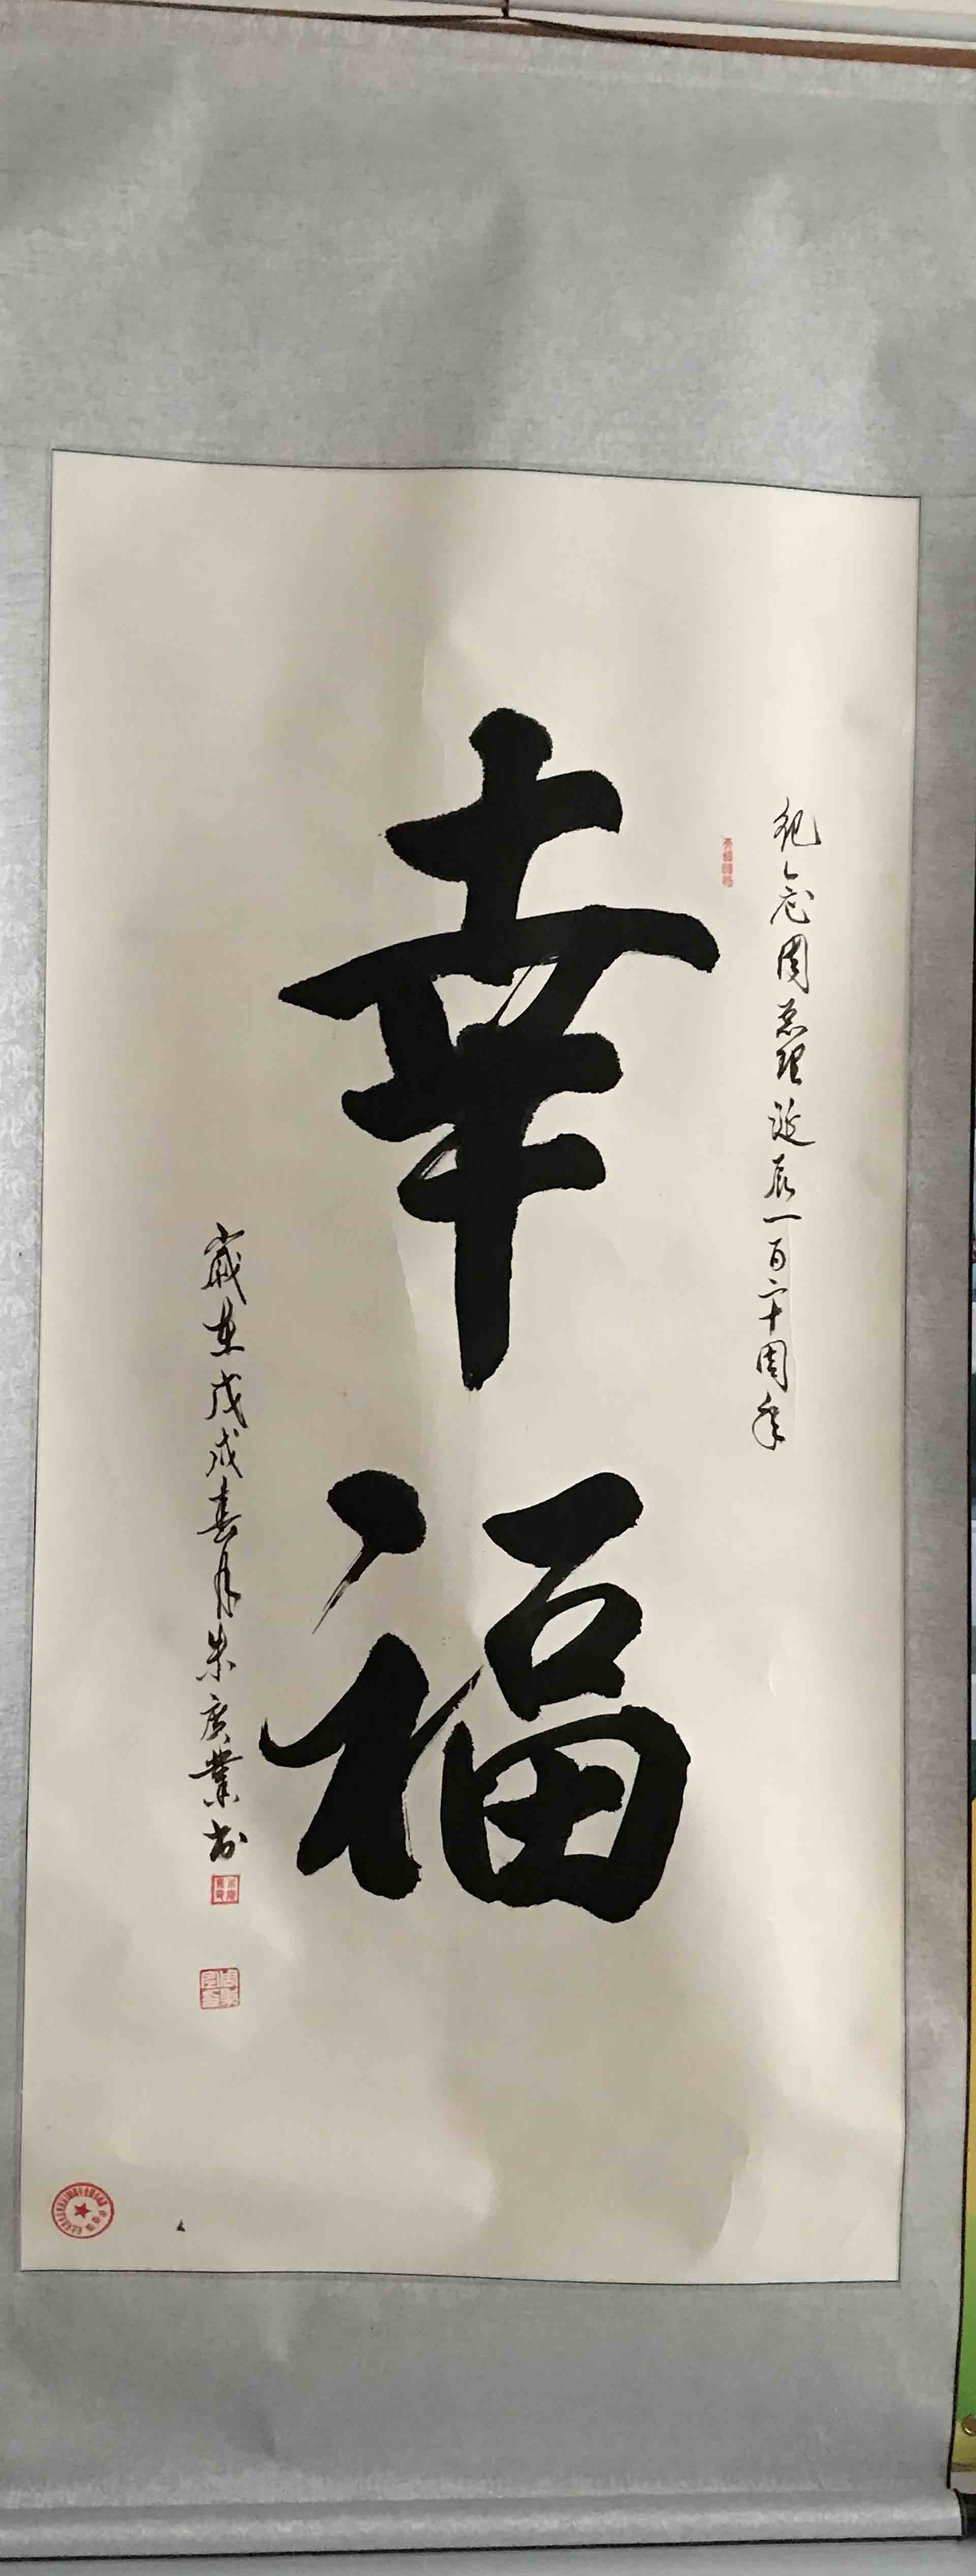 纪念周总理诞辰一百二十周年
幸福
岁在戊戌春月朱广业书